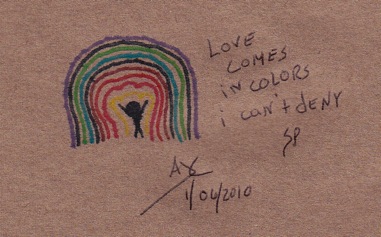 LOVE
COMES
IN COLORS
i can't DENY
SP
1/06/2010